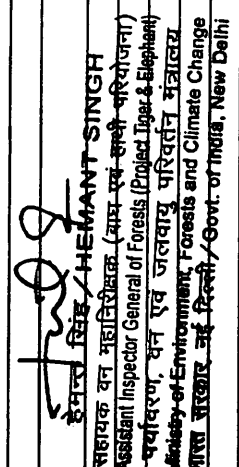 हेमन्त सिंह / HEMANT SINGH
सहायक वन महानिरीक्षक (बाघ एवं हाथी परियोजना)
Assistant Inspector General of Forests (Project Tiger & Elephant)
पर्यावरण, वन एवं जलवायु परिवर्तन मंत्रालय
Ministry of Environment, Forests and Climate Change
भारत सरकार नई दिल्ली / Govt. of India, New Delhi